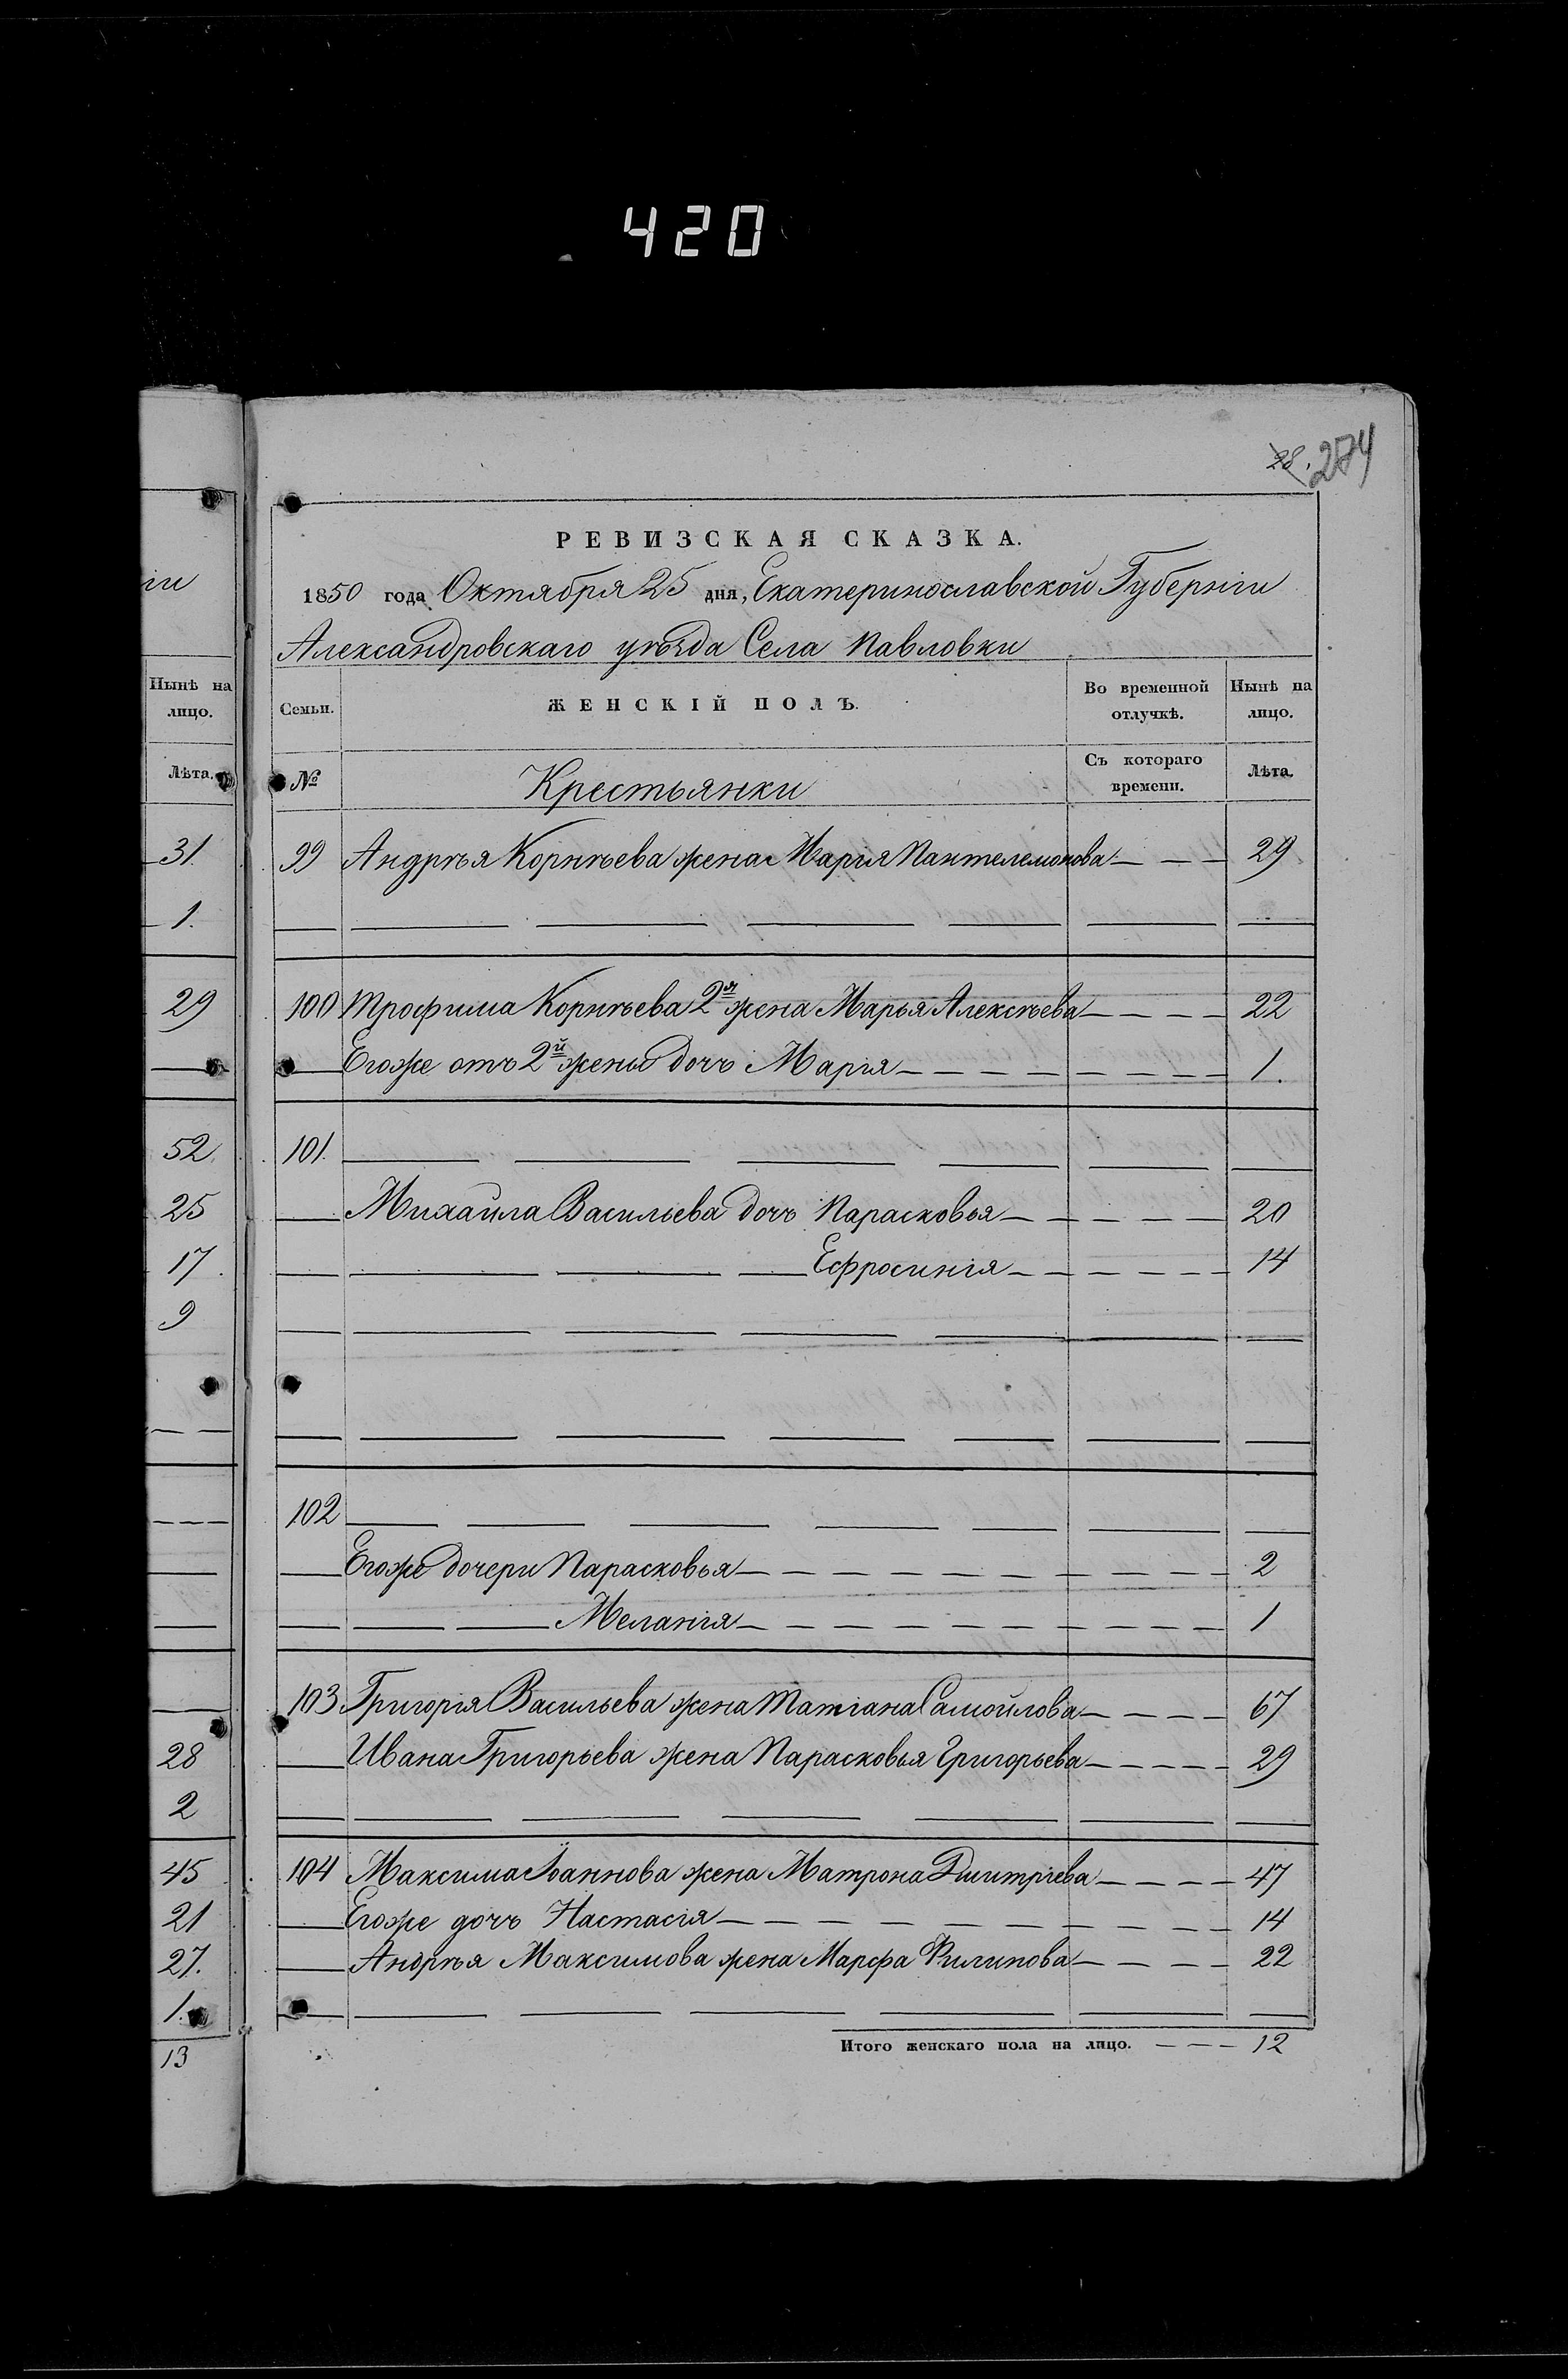 420
28. 274
РЕВИЗСКАЯ СКАЗКА.
1850 года Октября 25 дня, Екатеринославской Губерніи
Александровскаго уѣзда Села Павловки
Семьи. ЖЕНСКІЙ ПОЛЪ. Во временной отлучкѣ. Нынѣ на лицо.
№ Крестьянки Съ котораго времени. Лѣта.
99 Андрѣя Корнѣева жена Марія Пантелемонова 29
100 Трофима Корнѣева 2я жена Марья Алексѣева 22
Егоже отъ 2й жены дочь Марія 1.
101.
Михайла Васильева дочь Парасковья 20
Ефросинія 14
102
Егоже дочери Парасковья 2
Меланія 1
103 Григорія Васильева жена Татіана Самойлова 67
Ивана Григорьева жена Парасковья Григорьева 29
104 Максима Іоаннова жена Матрона Дмитріева 47
Егоже дочь Настасія 14
Андрѣя Максимова жена Марфа Филипова 22
Итого женскаго пола на лицо. 12
іи
Нынѣ на
лицо.
Лѣта.
31.
1.
29
52
25
17
9
28
2
45
21
27.
1.
13